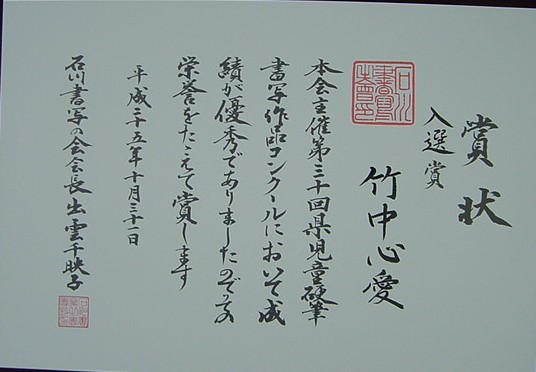 賞状
入選賞
竹中心愛
本会主催第三十回県児童硬筆
書写作品コンクールにおいて成
績が優秀でありましたのでその
栄誉をたたえて賞します
平成二十五年十月三十一日
石川書写の会会長 出雲千映子